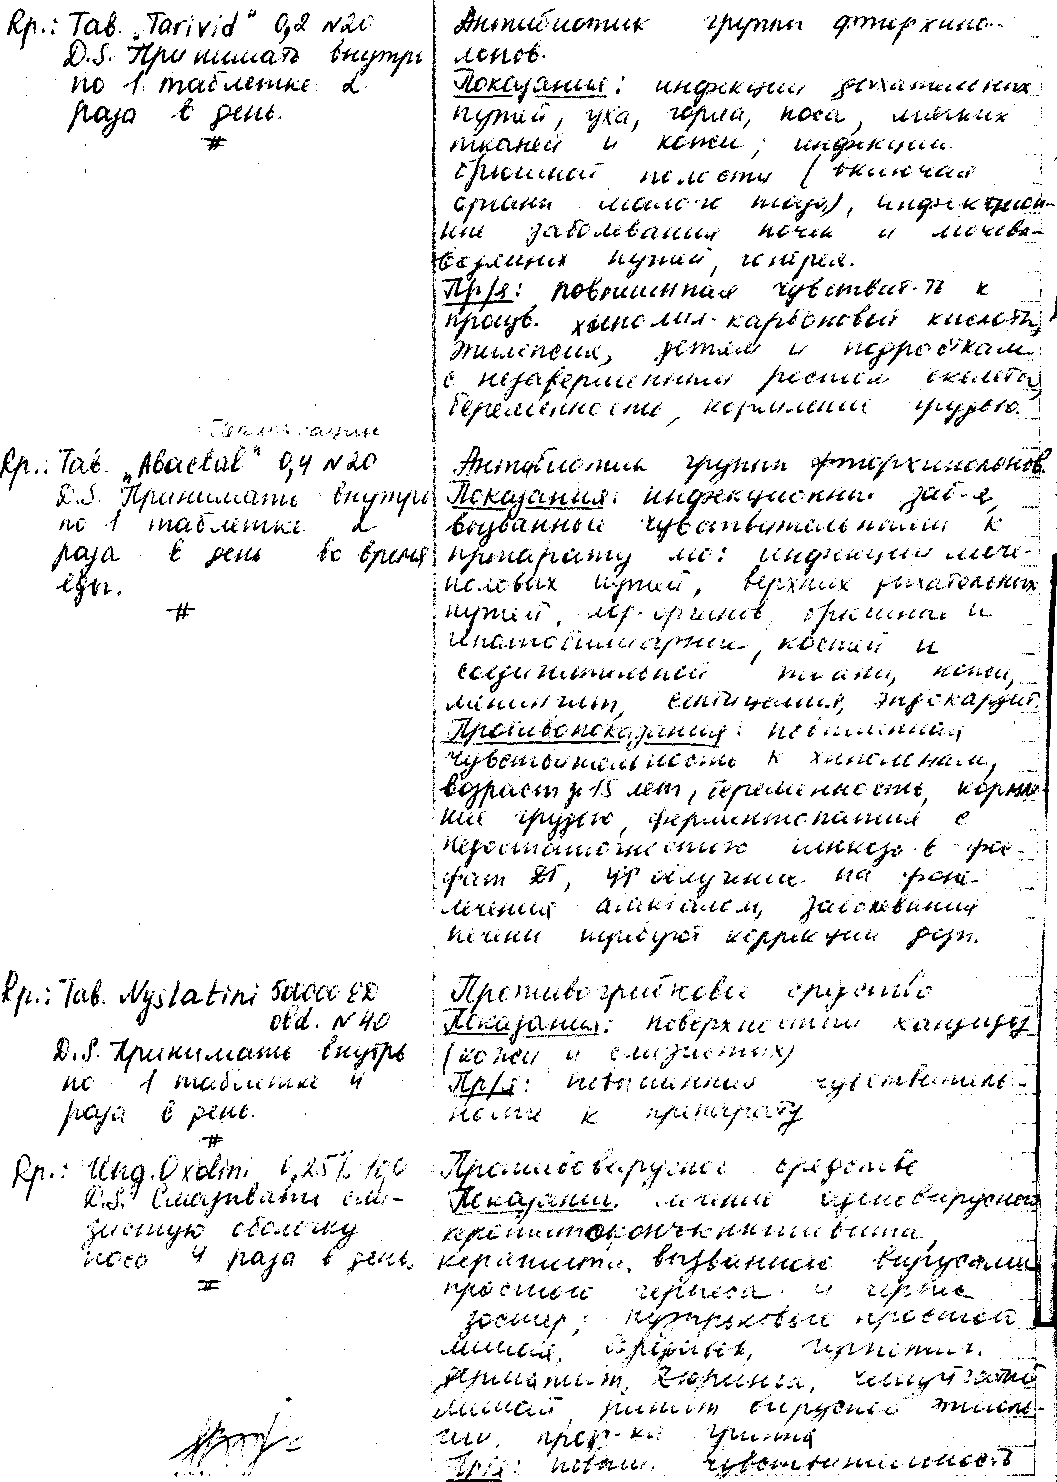 Rp.: Tab. „Tarivid" 0,2 N20
D.S. Принимать внутрь
по 1 таблетке 2
раза в день.
#
Антибиотик группы фторхино-
лонов.
Показания: инфекции дыхательных
путей, уха, горла, носа, мягких
тканей и кожи; инфекции
брюшной полости (включая
органы малого таза), инфекцион-
ные заболевания почек и мочевы-
водящих путей, гонорея.
Пр/я: повышенная чувствит-ть к
произв. хинолин-карбоновый кислоты,
эпилепсия, детям и подросткам
с незавершенным ростом скелета,
беременности, кормлении грудью.
Rp.: Tab. „Abactal" 0,4 N20
D.S. Принимать внутрь
по 1 таблетке 2
раза в день во время
еды.
#
Антибиотик группы фторхинолонов.
Показания: инфекционные заб-я,
вызванные чувствительными к
препарату мо: инфекции моче-
половых путей, верхних дыхательных
путей, лор-органов, брюшной и
гепатобилиарной, костей и
соединительной ткани, кожи,
менингит, септицемия, эндокардит.
Противопоказания: повышенная
чувствительность к хинолонам,
возраст до 15 лет, беременность, кормле-
ние грудью, ферментопатия с
недостаточностью глюкозо-6-фос-
фат ДГ, УФ облучение на фоне
лечения абакталом, заболевания
печени требуют коррекции дозы.
Rp.: Tab. Nystatini 500000 ЕД
obd. N 40
D.S. Принимать внутрь
по 1 таблетке 4
раза в день.
#
Противогрибковое средство
Показания: поверхностный кандидоз
(кожи и слизистых)
Пр/я: повышенная чувствитель-
ность к препарату
Rp.: Ung. Oxolini 0,25% 10,0
D.S. Смазывать сли-
зистую оболочку
носа 4 раза в день.
Противовирусное средство
Показания: лечение аденовирусного
кератоконъюнктивита,
кератиты, вызванного вирусами
простого герпеса и герпес
зостер; пузырьковый простой
лишай,
дерматит Дюринга, чешуйчатый
лишай, ринит вирусной этиоло-
гии, проф-ка гриппа
Пр/я: повыш. чувствительность